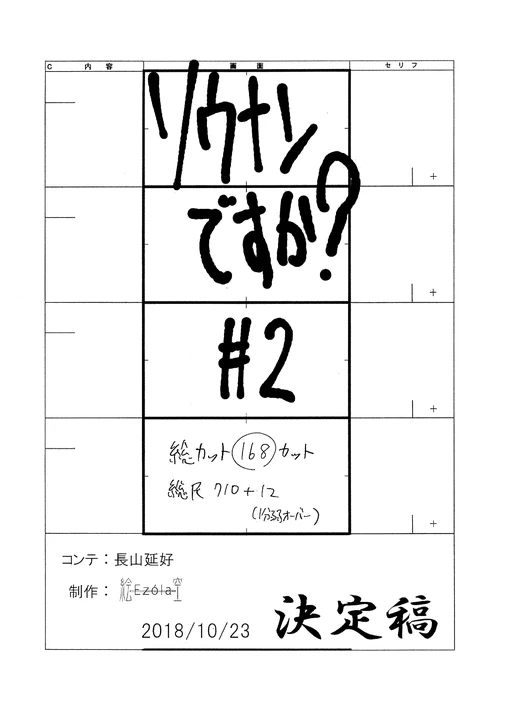 C 内容 画面 セリフ
ソウナン
ですか?
#2
総カット 168 カット
総尺 710+12
(1分弱オーバー)
コンテ：長山延好
制作：絵Ezóla空
2018/10/23
決定稿